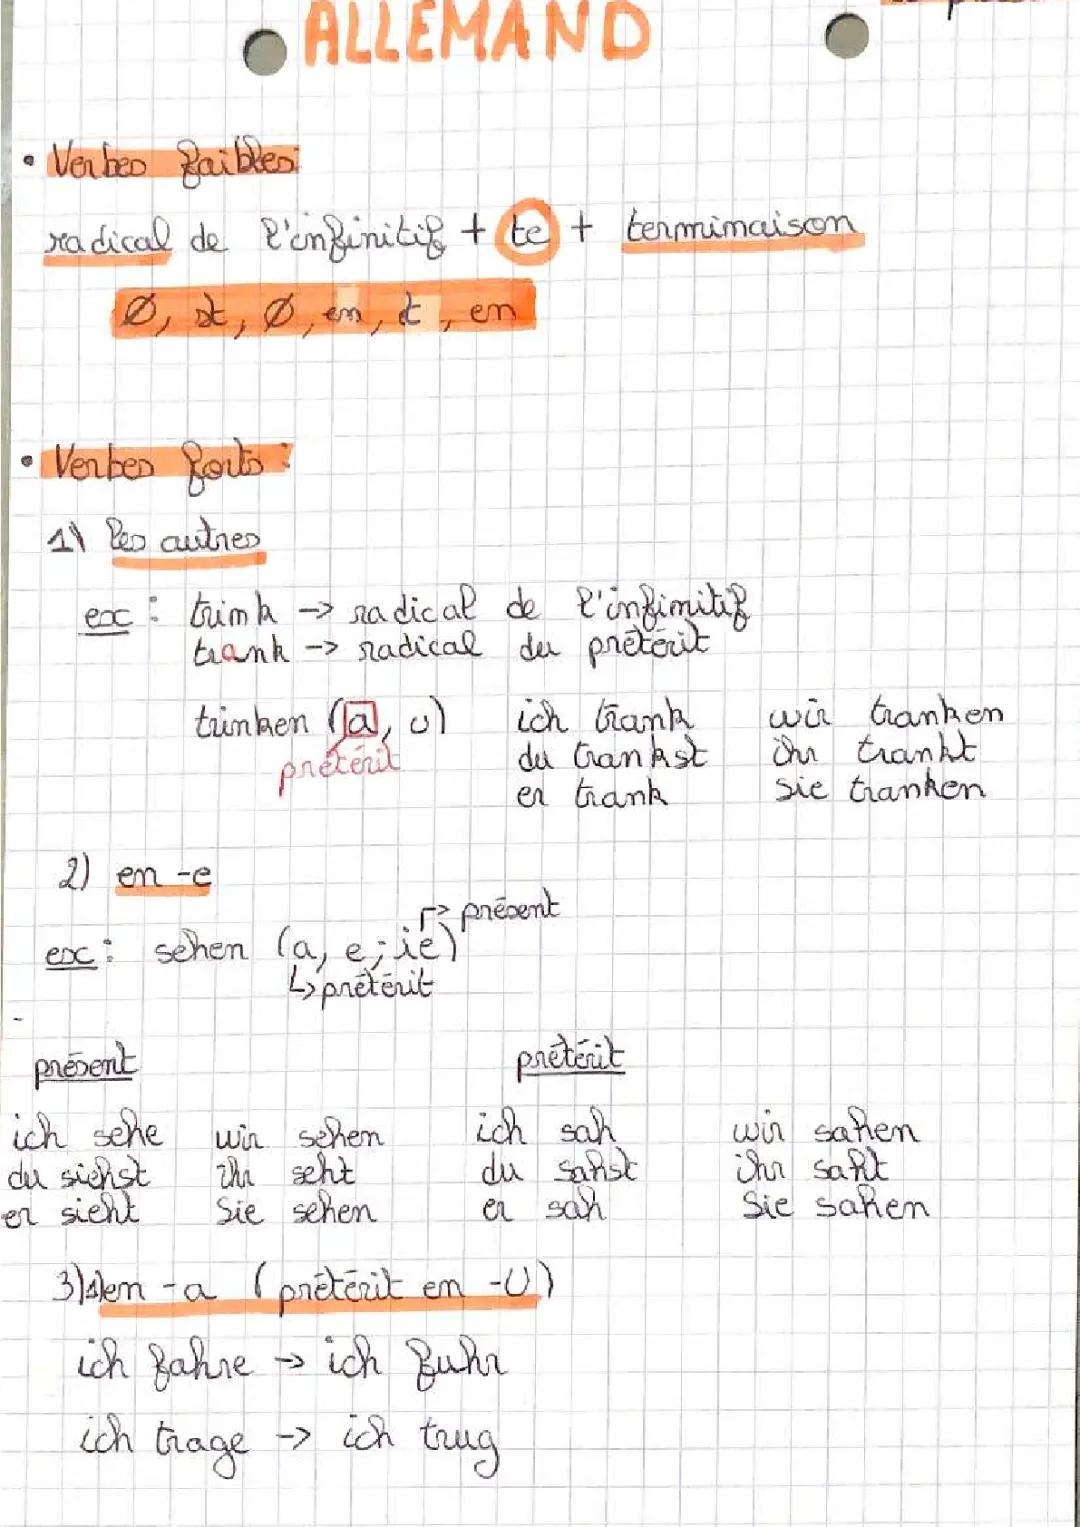 ALLEMAND
• Verbes faibles:
radical de l'infinitif + te + terminaison
Ø, st, Ø, en, t, en
• Verbes forts :
1) les autres
ex : trink -> radical de l'infinitif
trank -> radical du prétérit
trinken (a, u) ich trank wir tranken
prétérit du trankst ihr trankt
er trank sie tranken
2) en -e
-> présent
ex : sehen (a, e; ie)
-> prétérit
présent prétérit
ich sehe wir sehen ich sah wir sahen
du siehst ihr seht du sahst ihr saht
er sieht Sie sehen er sah Sie sahen
3) en -a (prétérit en -U)
ich fahre -> ich fuhr
ich trage -> ich trug